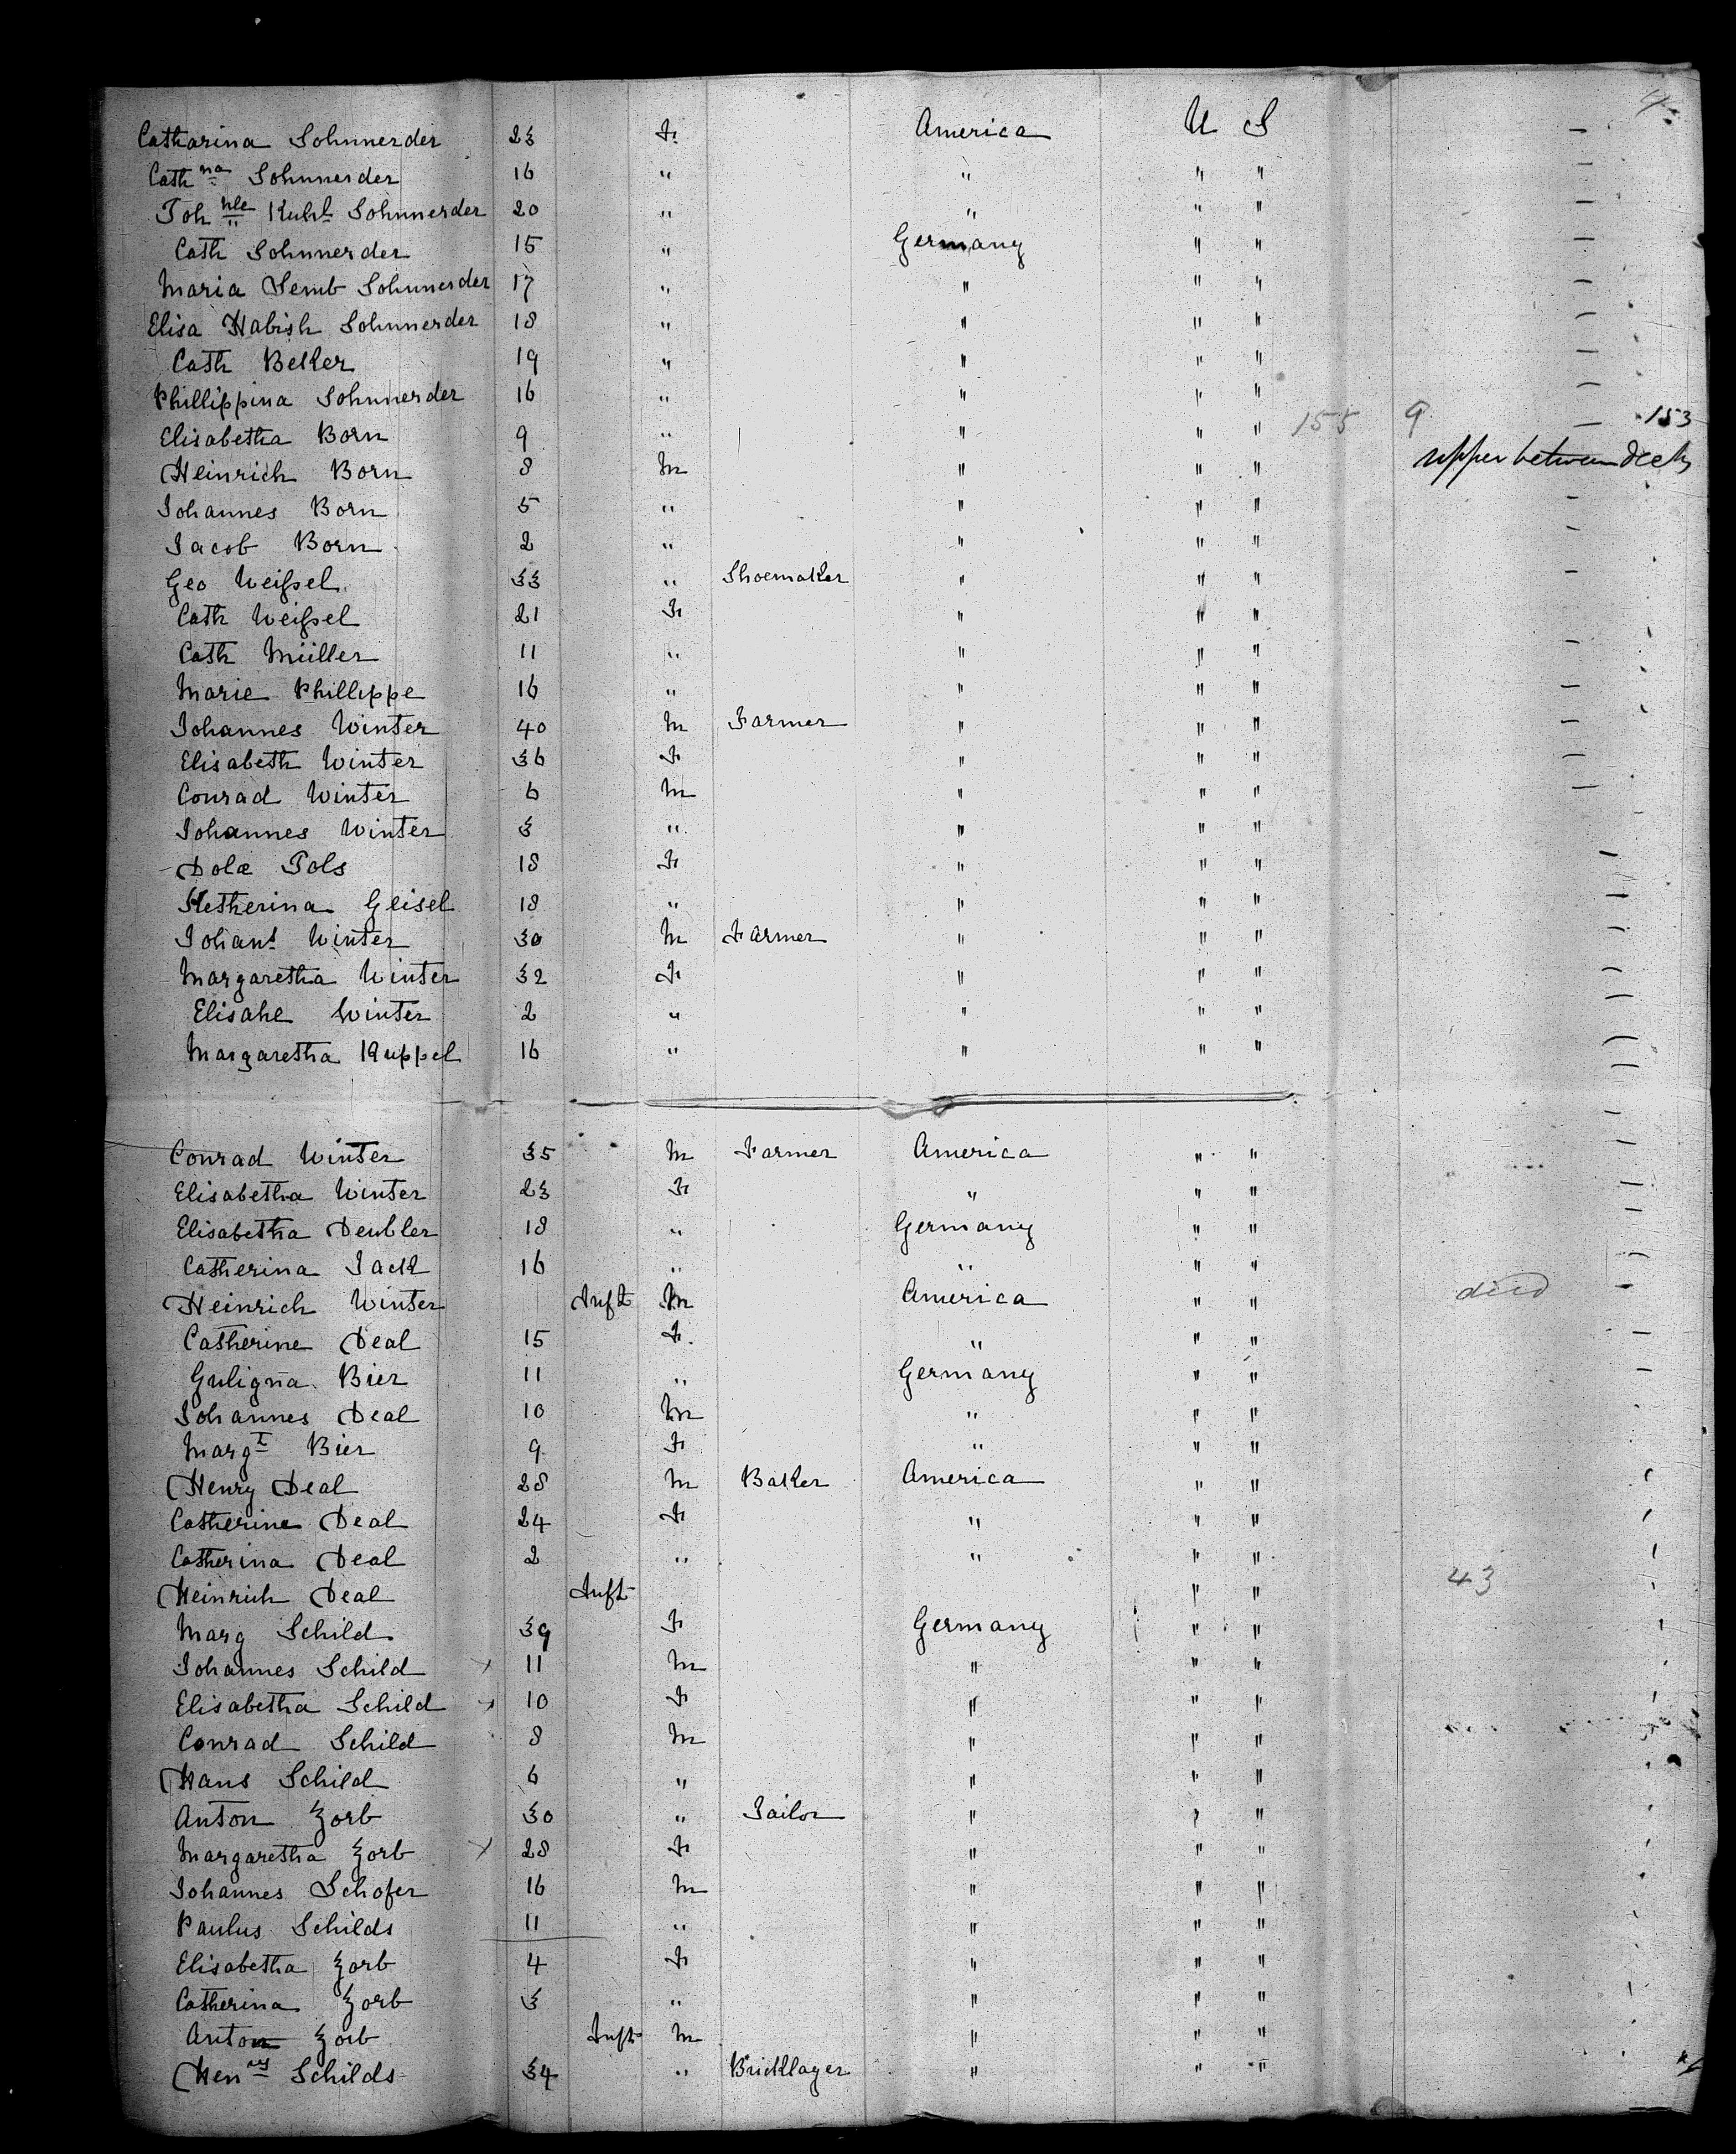 Catharina Sohnnerder 23 F. America U S —
Cath na Sohnnerder 16 " " " " —
Joh nle Kuhl Sohnnerder 20 " " " " —
Cath Sohnnerder 15 " Germany " " —
Maria Semb Sohnnerder 17 " " " " —
Elisa Habish Sohnnerder 18 " " " " —
Cath Beker 19 " " " " —
Phillippina Sohnnerder 16 " " " " —
Elisabetha Born 9 " " " " 155 9 — 153
Heinrich Born 8 M " " " upper between decks
Johannes Born 5 " " " " —
Jacob Born 2 " " " " —
Geo Weißel 33 " Shoemaker " " " —
Cath Weißel 21 F " " "
Cath Müller 11 " " " " —
Marie Phillippe 16 " " " " —
Johannes Winter 40 M Farmer " " " —
Elisabeth Winter 36 F " " " —
Conrad Winter 6 M " " " —
Johannes Winter 3 " " " "
Dola Tols 18 F " " " —
Ketherina Geisel 18 " " " " —
Johans Winter 30 M Farmer " " " —
Margaretha Winter 32 F " " " —
Elisahe Winter 2 " " " " —
Margaretha Ruppel 16 " " " " —
Conrad Winter 35 M Farmer America " "
Elisabetha Winter 23 F " " " —
Elisabetha Deubler 18 " Germany " " —
Catherina Jack 16 " " " " —
Heinrich Winter Inft M America " " died —
Catherine Deal 15 F. " " " —
Guligna Bier 11 " Germany " " —
Johannes Deal 10 M " " "
Margt Bier 9 F " " "
Henry Deal 28 M Baker America " "
Catherine Deal 24 F " " "
Catherina Deal 2 " " " "
Heinrich Deal Inft " " 43
Marg Schild 39 F Germany " "
Johannes Schild x 11 M " " "
Elisabetha Schild x 10 F " " "
Conrad Schild 8 M " " "
Hans Schild 6 " " " "
Anton Zorb 30 " Tailor " " "
Margaretha Zorb x 28 F " " "
Johannes Schofer 16 M " " "
Paulus Schilds 11 " " " "
Elisabetha Zorb 4 F " " "
Catherina Zorb 3 " " " "
Anton Zorb Inft M " " "
Hen ry Schilds 34 " Bricklayer " " "